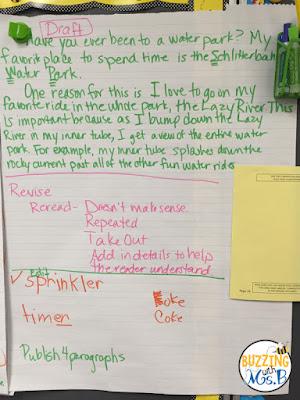 Draft
Have you ever been to a water park? My
favorite place to spend time is the Schlitterbahn
Water Park.
One reason for this is I love to go on my
favorite ride in the whole park, the Lazy River. This
is important because as I bump down the Lazy
River in my inner tube, I get a view of the entire water
park. For example, my inner tube splashes down the
rocky current past all of the other fun water rides.
Revise
Reread- Doesn't make sense
Repeated
Take Out
Add in details to help
the reader understand
edit
✓ Sprinkler
timer
Coke
Publish 4 paragraphs
BUZZING
with
Ms.B